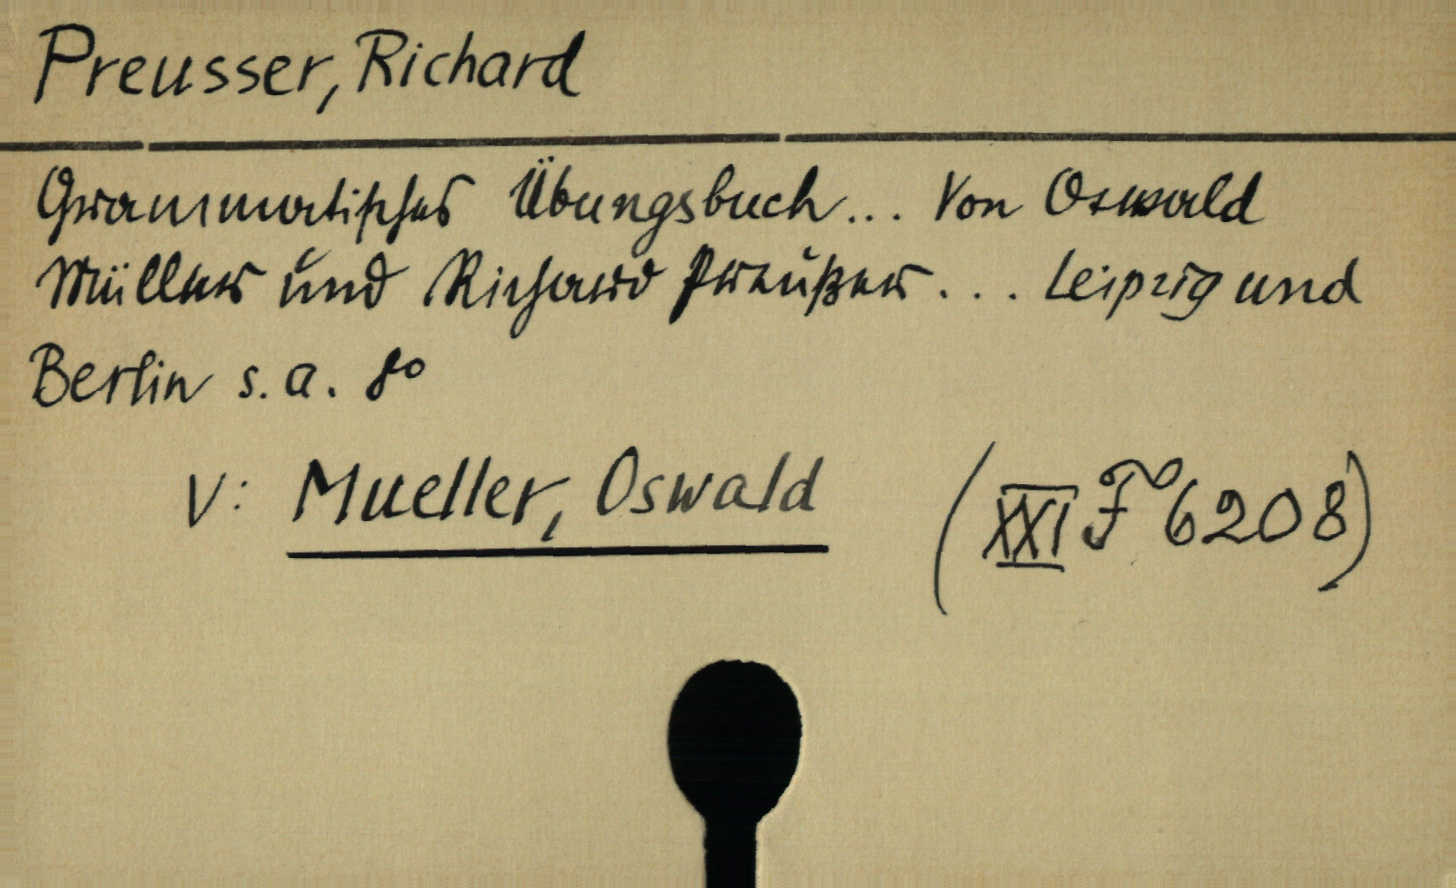 Preusser, Richard
Grammatisches Übungsbuch... Von Oswald
Müller und Richard Preußer... Leipzig und
Berlin s.a. 8°
V: Mueller, Oswald (XXI F 6208)